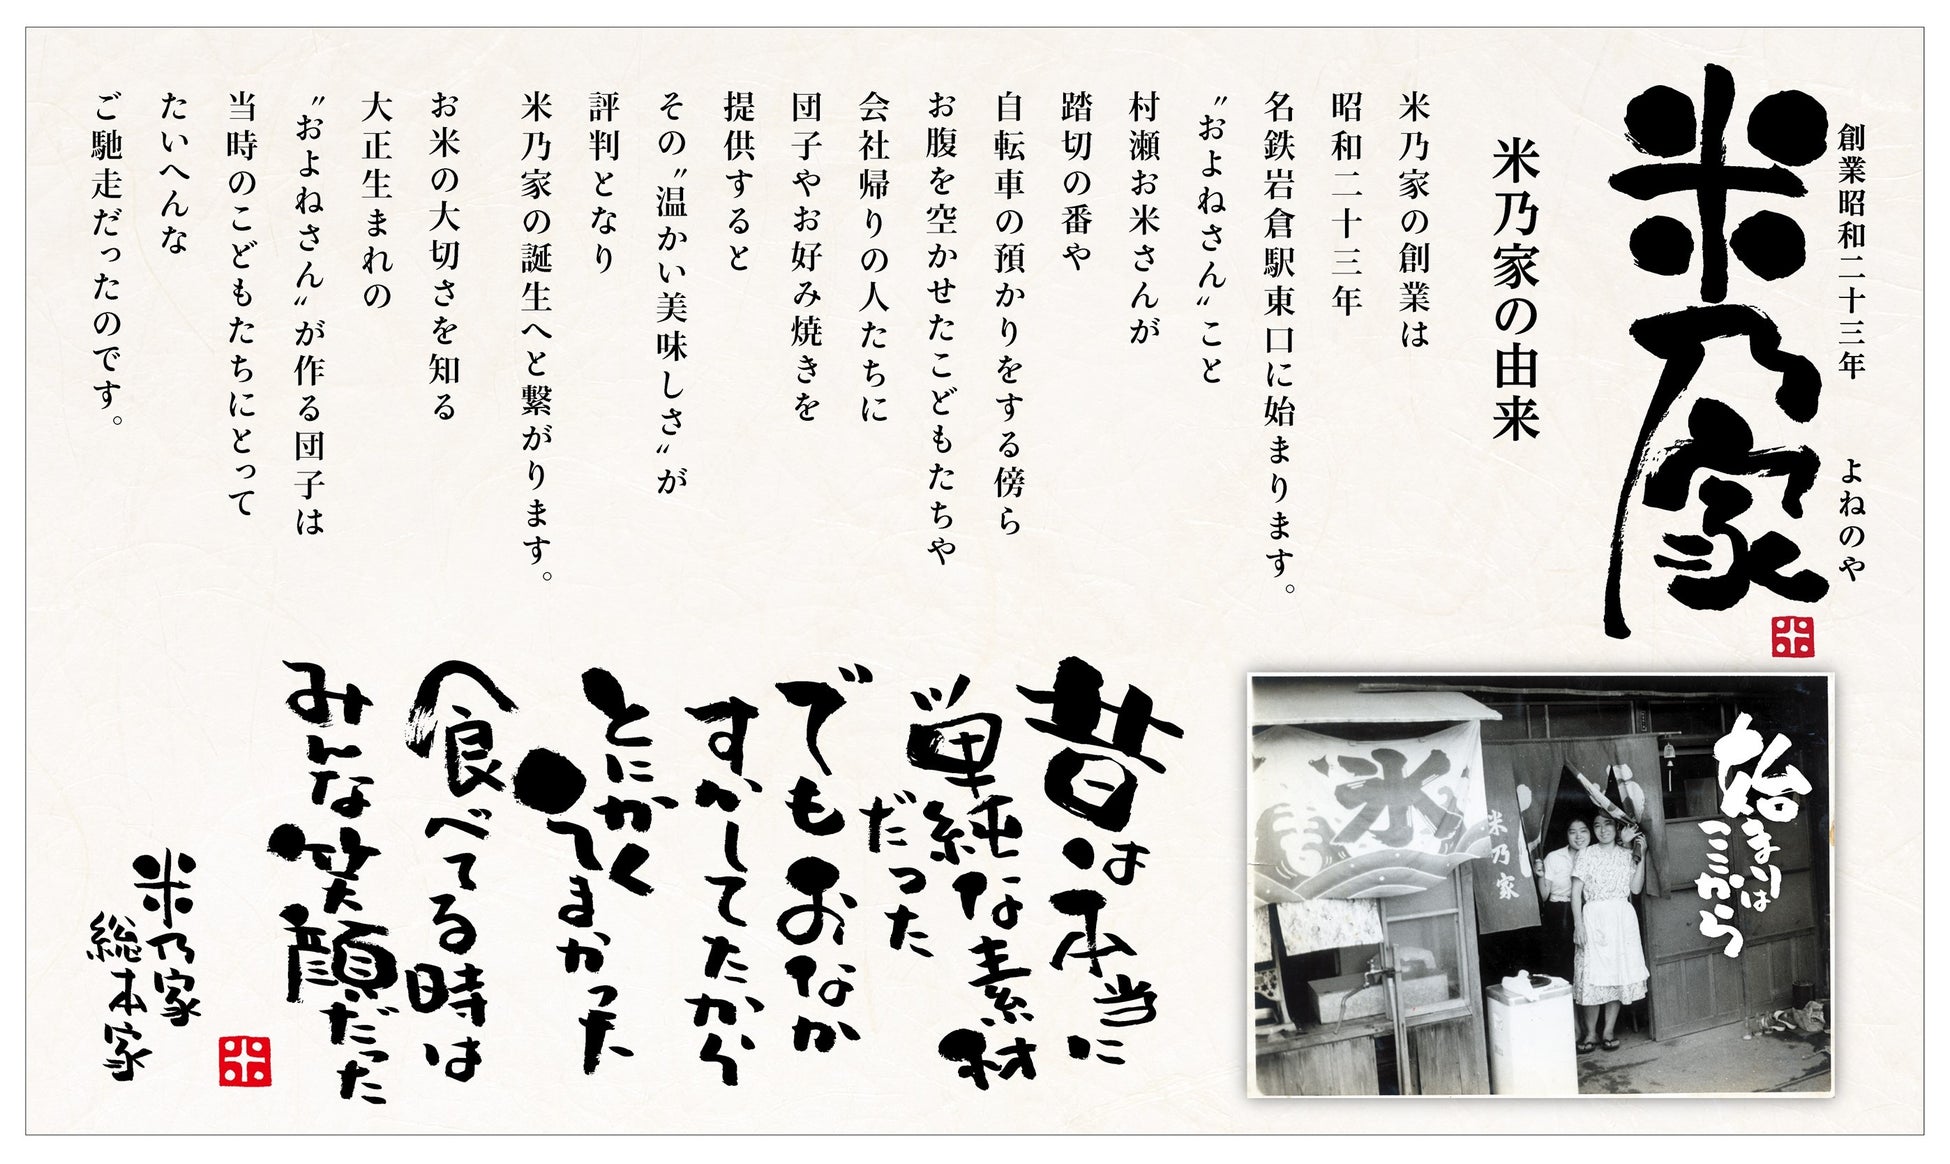 創業昭和二十三年　よねのや
米乃家
米
米乃家の由来
米乃家の創業は
昭和二十三年
名鉄岩倉駅東口に始まります。
〝およねさん〟こと
村瀬お米さんが
踏切の番や
自転車の預かりをする傍ら
お腹を空かせたこどもたちや
会社帰りの人たちに
団子やお好み焼きを
提供すると
その〝温かい美味しさ〟が
評判となり
米乃家の誕生へと繋がります。
お米の大切さを知る
大正生まれの
〝およねさん〟が作る団子は
当時のこどもたちにとって
たいへんな
ご馳走だったのです。
始まりは
ここから
氷
米乃家
昔は本当に
単純な素材
だった
でもおなか
すかしてたから
とにかく
てまかった
食べてる時は
みんな笑顔だった
米乃家
総本家
米